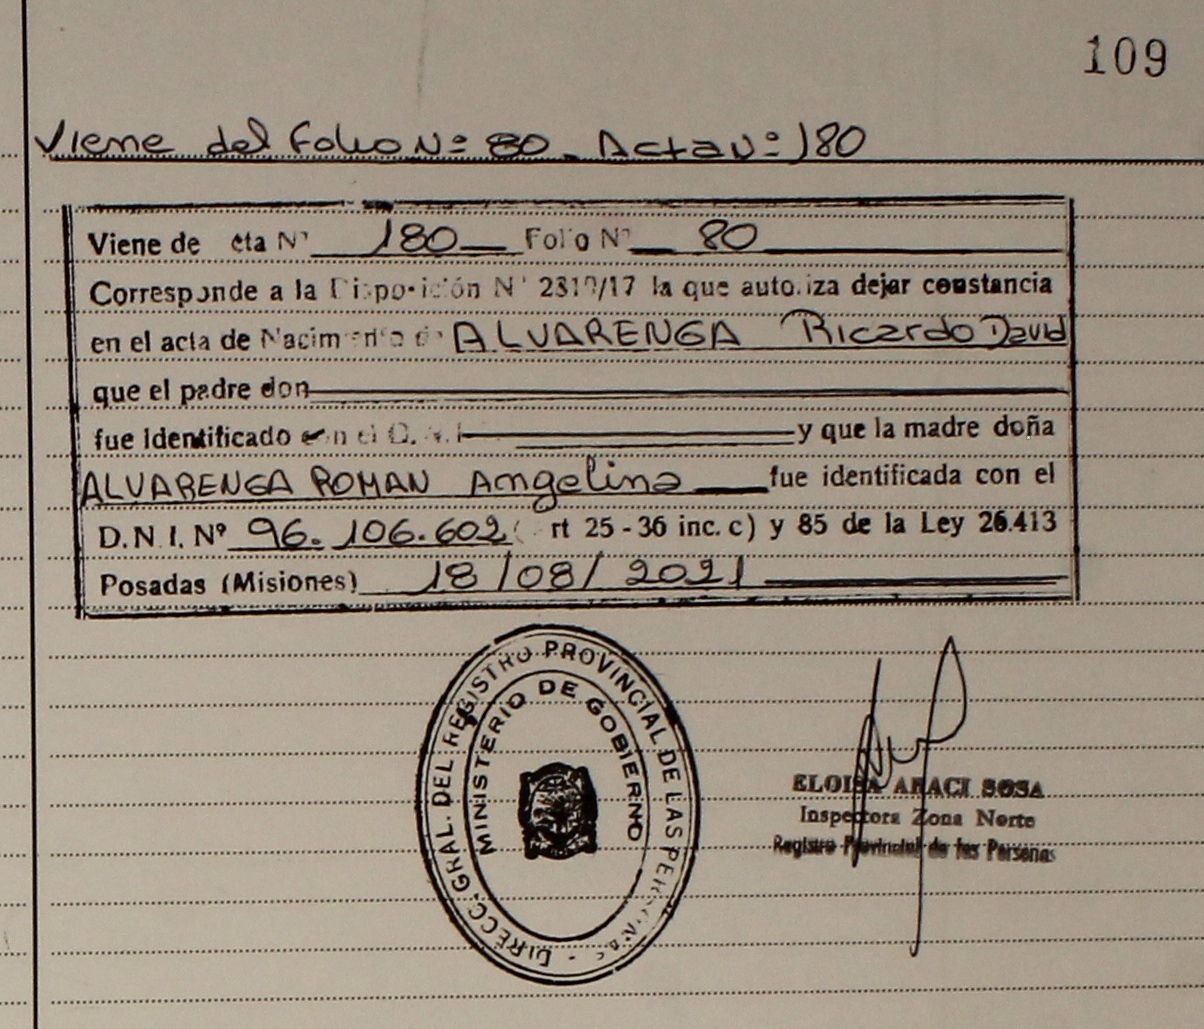 109
Viene del Folio Nº 80. Acta Nº 180
Viene de cta Nº 180 Folio Nº 80
Corresponde a la Disposición Nº /17 la que autoriza dejar constancia
en el acta de Nacimiento de ALVARENGA Ricardo David
que el padre don
fue identificado con el y que la madre doña
ALVARENGA ROMAN Angelina fue identificada con el
D.N.I. Nº 96.106.602 ( rt 25 - 36 inc. c) y 85 de la Ley 26.413
Posadas (Misiones) 18/08/2021
DIRECC. GRAL. DEL REGISTRO PROVINCIAL DE LAS PERSONAS
MINISTERIO DE GOBIERNO
ELOISA ARACI SOSA
Inspectora Zona Norte
Registro Provincial de las Personas